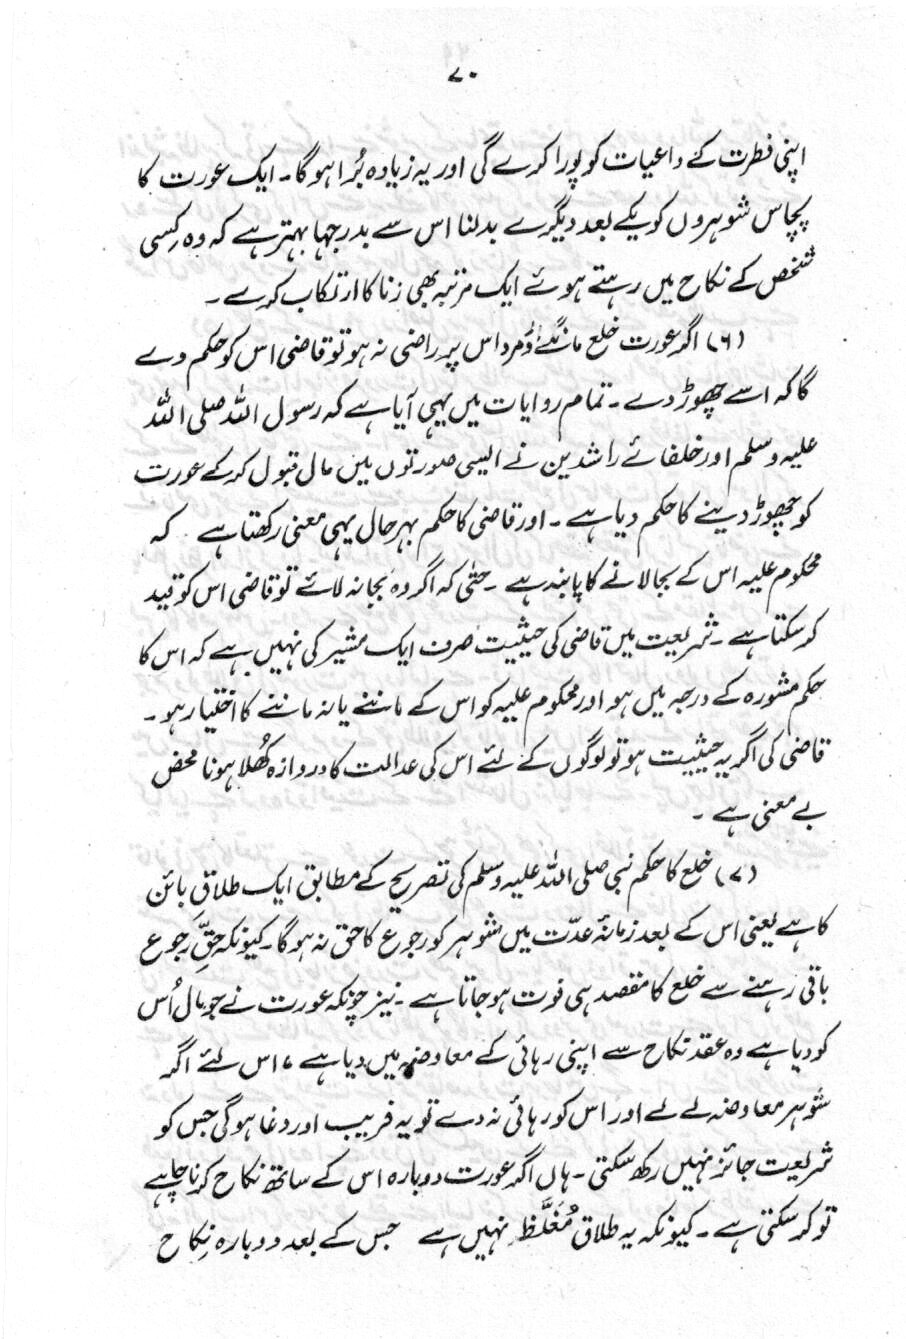 ۷۰
اپنی فطرت کے داعیات کو پورا کرے گی اور یہ زیادہ بُرا ہوگا۔ ایک عورت کا
پچاس شوہروں کو یکے بعد دیگرے بدلنا اس سے بدرجہا بہتر ہے کہ وہ کسی
شخص کے نکاح میں رہتے ہوئے ایک مرتبہ بھی زنا کا ارتکاب کرے۔
(۶) اگر عورت خلع مانگے اور مرد اس پر راضی نہ ہو تو قاضی اس کو حکم دے
گا کہ اسے چھوڑ دے۔ تمام روایات میں یہی آیا ہے کہ رسول اللہ صلی اللہ
علیہ وسلم اور خلفائے راشدین نے ایسی صورتوں میں مال قبول کر کے عورت
کو چھوڑ دینے کا حکم دیا ہے۔ اور قاضی کا حکم بہرحال یہی معنی رکھتا ہے کہ
محکوم علیہ اس کے بجا لانے کا پابند ہے۔ حتٰی کہ اگر وہ بجا نہ لائے تو قاضی اس کو قید
کر سکتا ہے۔ شریعت میں قاضی کی حیثیت صرف ایک مشیر کی نہیں ہے کہ اس کا
حکم مشورہ کے درجہ میں ہو اور محکوم علیہ کو اس کے ماننے یا نہ ماننے کا اختیار ہو۔
قاضی کی اگر یہ حیثیت ہو تو لوگوں کے لئے اس کی عدالت کا دروازہ کُھلا ہونا محض
بے معنی ہے۔
(۷) خلع کا حکم نبی صلی اللہ علیہ وسلم کی تصریح کے مطابق ایک طلاق بائن
کا ہے یعنی اس کے بعد زمانۂ عدت میں شوہر کو رجوع کا حق نہ ہوگا۔ کیونکہ حقِّ رجوع
باقی رہنے سے خلع کا مقصد ہی فوت ہو جاتا ہے۔ نیز چونکہ عورت نے جو مال اُس
کو دیا ہے وہ عقد نکاح سے اپنی رہائی کے معاوضہ میں دیا ہے، اس لئے اگر
شوہر معاوضہ لے لے اور اس کو رہائی نہ دے تو یہ فریب اور دغا ہوگی جس کو
شریعت جائز نہیں رکھ سکتی۔ ہاں اگر عورت دوبارہ اس کے ساتھ نکاح کرنا چاہے
تو کر سکتی ہے۔ کیونکہ یہ طلاق مُغَلَّظ نہیں ہے جس کے بعد دوبارہ نِکاح